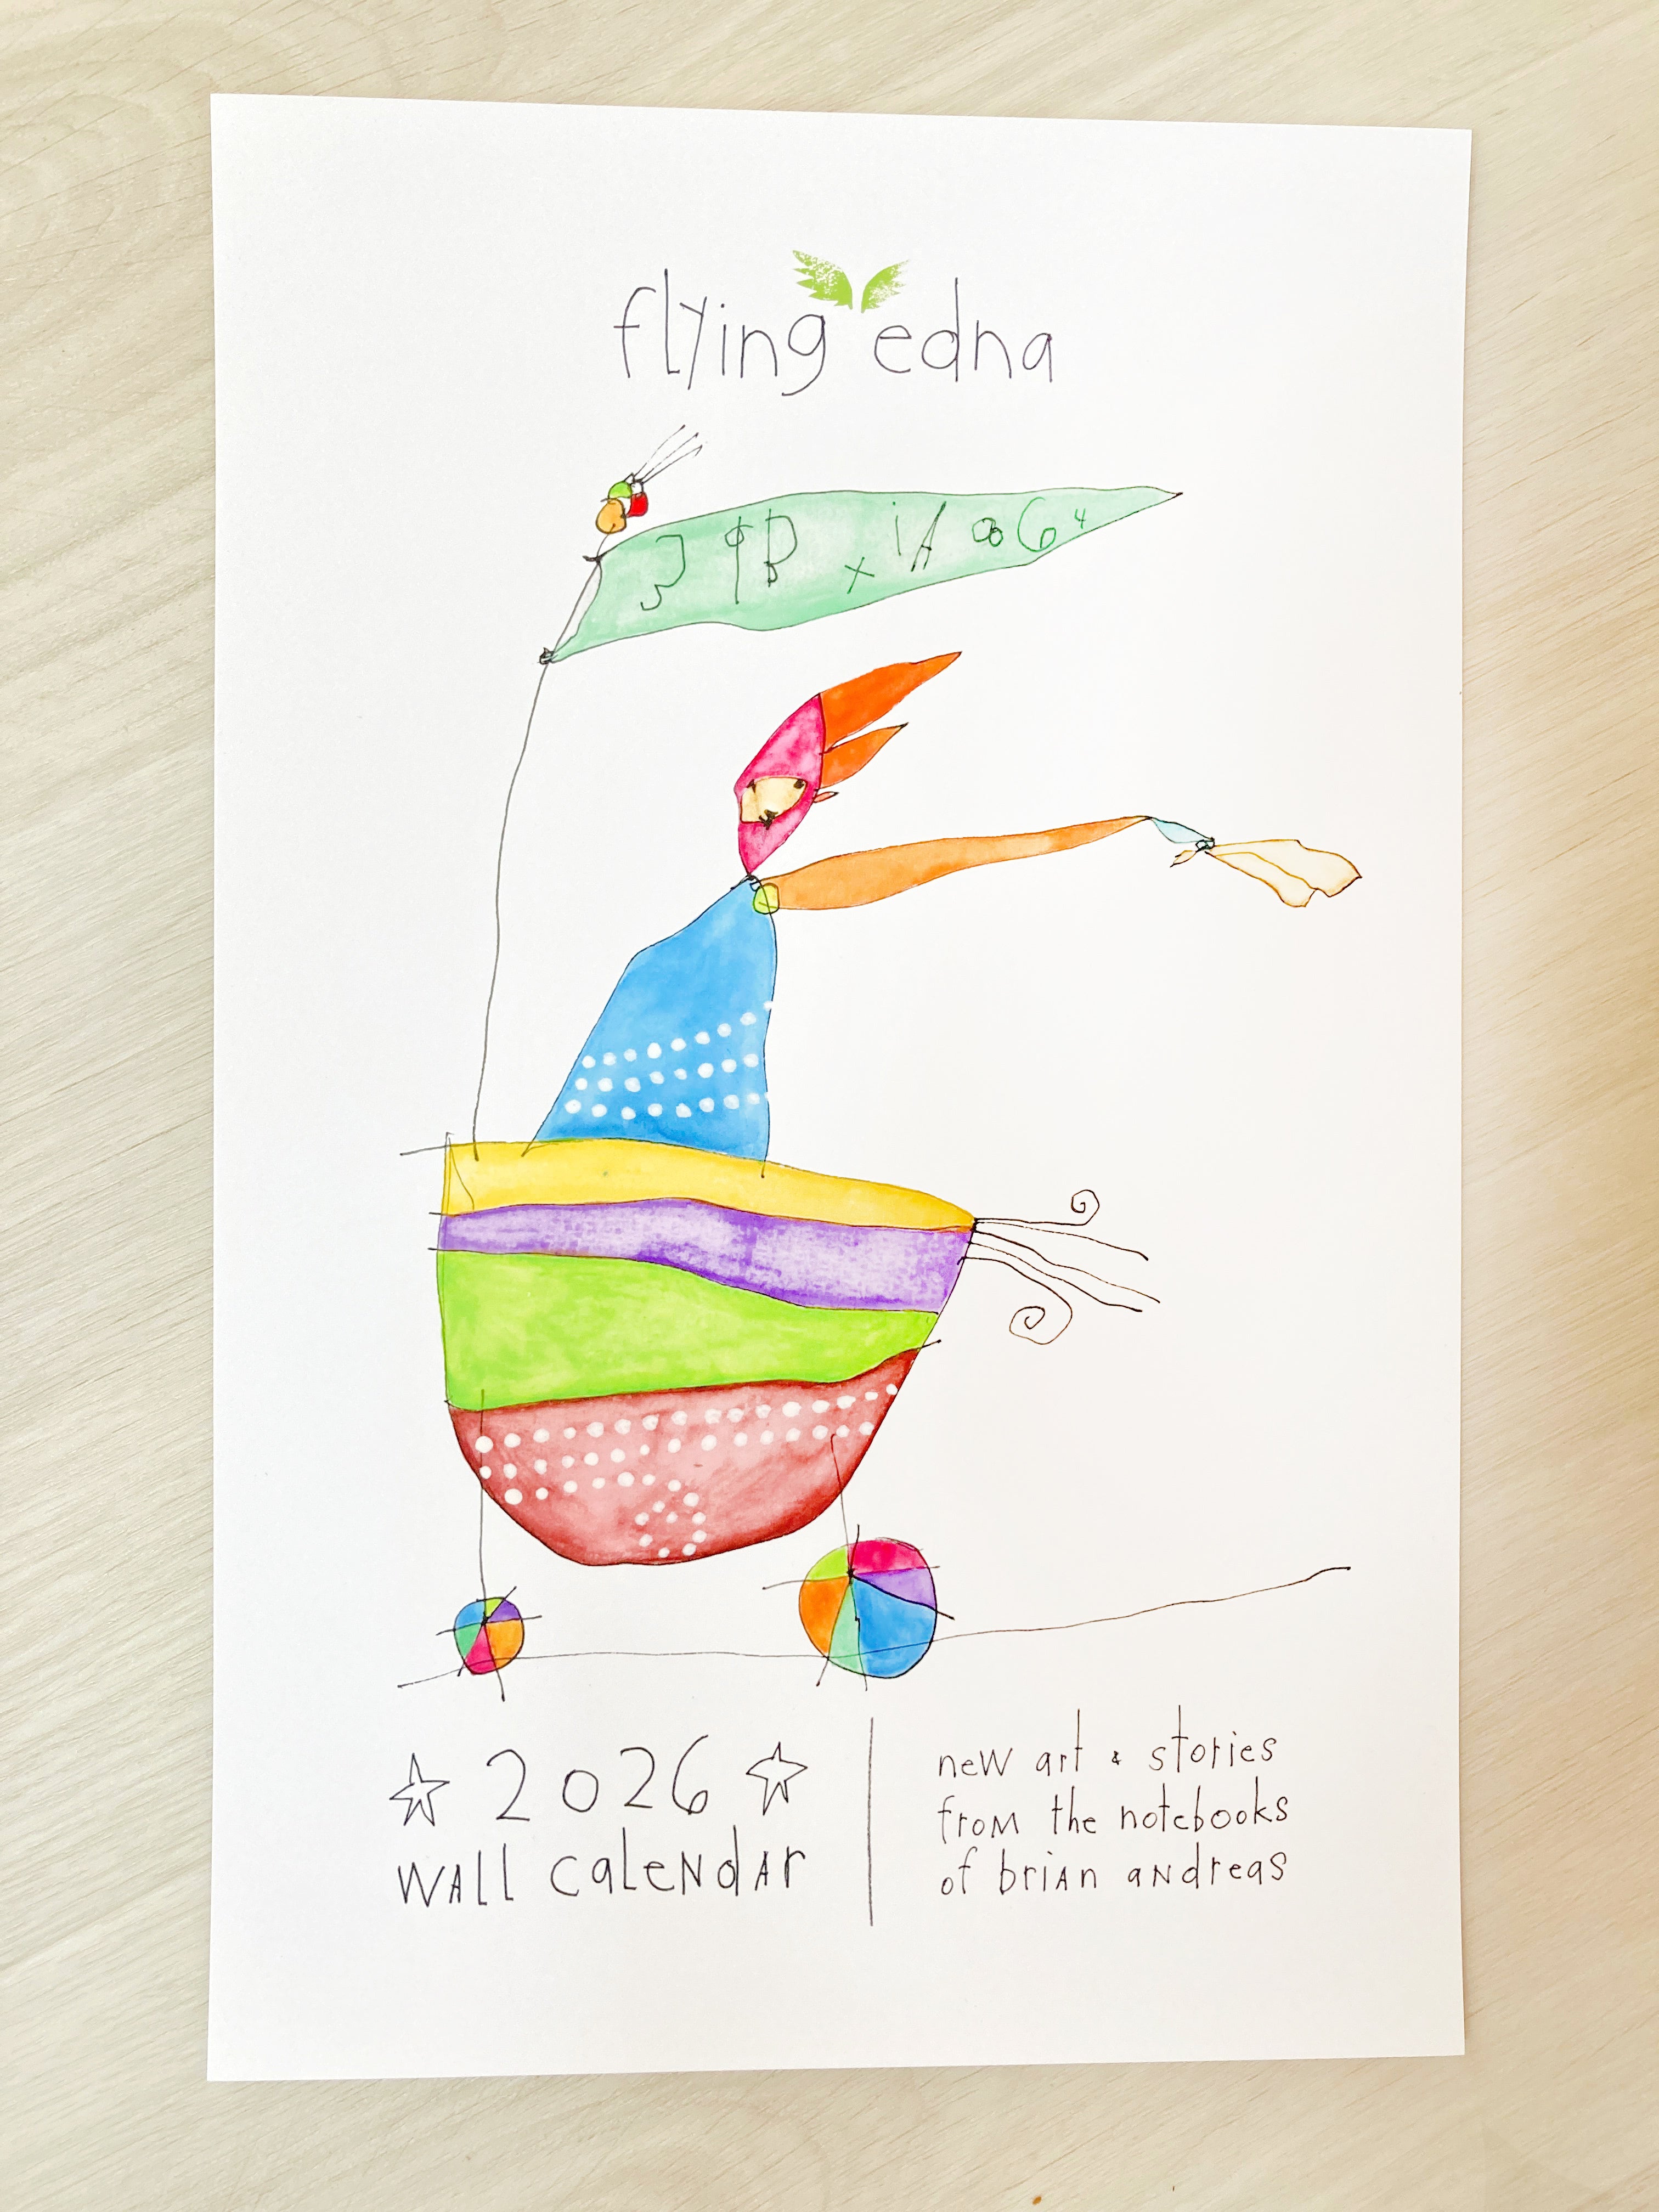 flying edna
☆ 2026 ☆
wall calendar
new art & stories
from the notebooks
of brian andreas